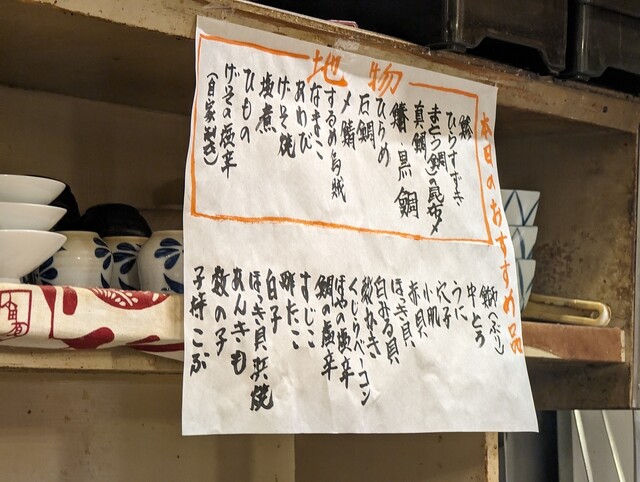 本日のおすすめ品
地物
鯵
ひらすずき
まとう鯛の昆布〆
真鯛
黒鯛
ひらめ
石鯛
〆鯖
するめ烏賊
なまこ
あわび
げそ焼
塩煮
ひもの
げその塩辛
(自家製)
(ぶり)
中とろ
うに
穴子
小肌
赤貝
ほっき貝
白みる貝
数ねぎ
くじらベーコン
ほやの塩辛
鯛の塩辛
すじこ
酢たこ
白子
ほっき貝浜焼
あんきも
数の子
子持こぶ